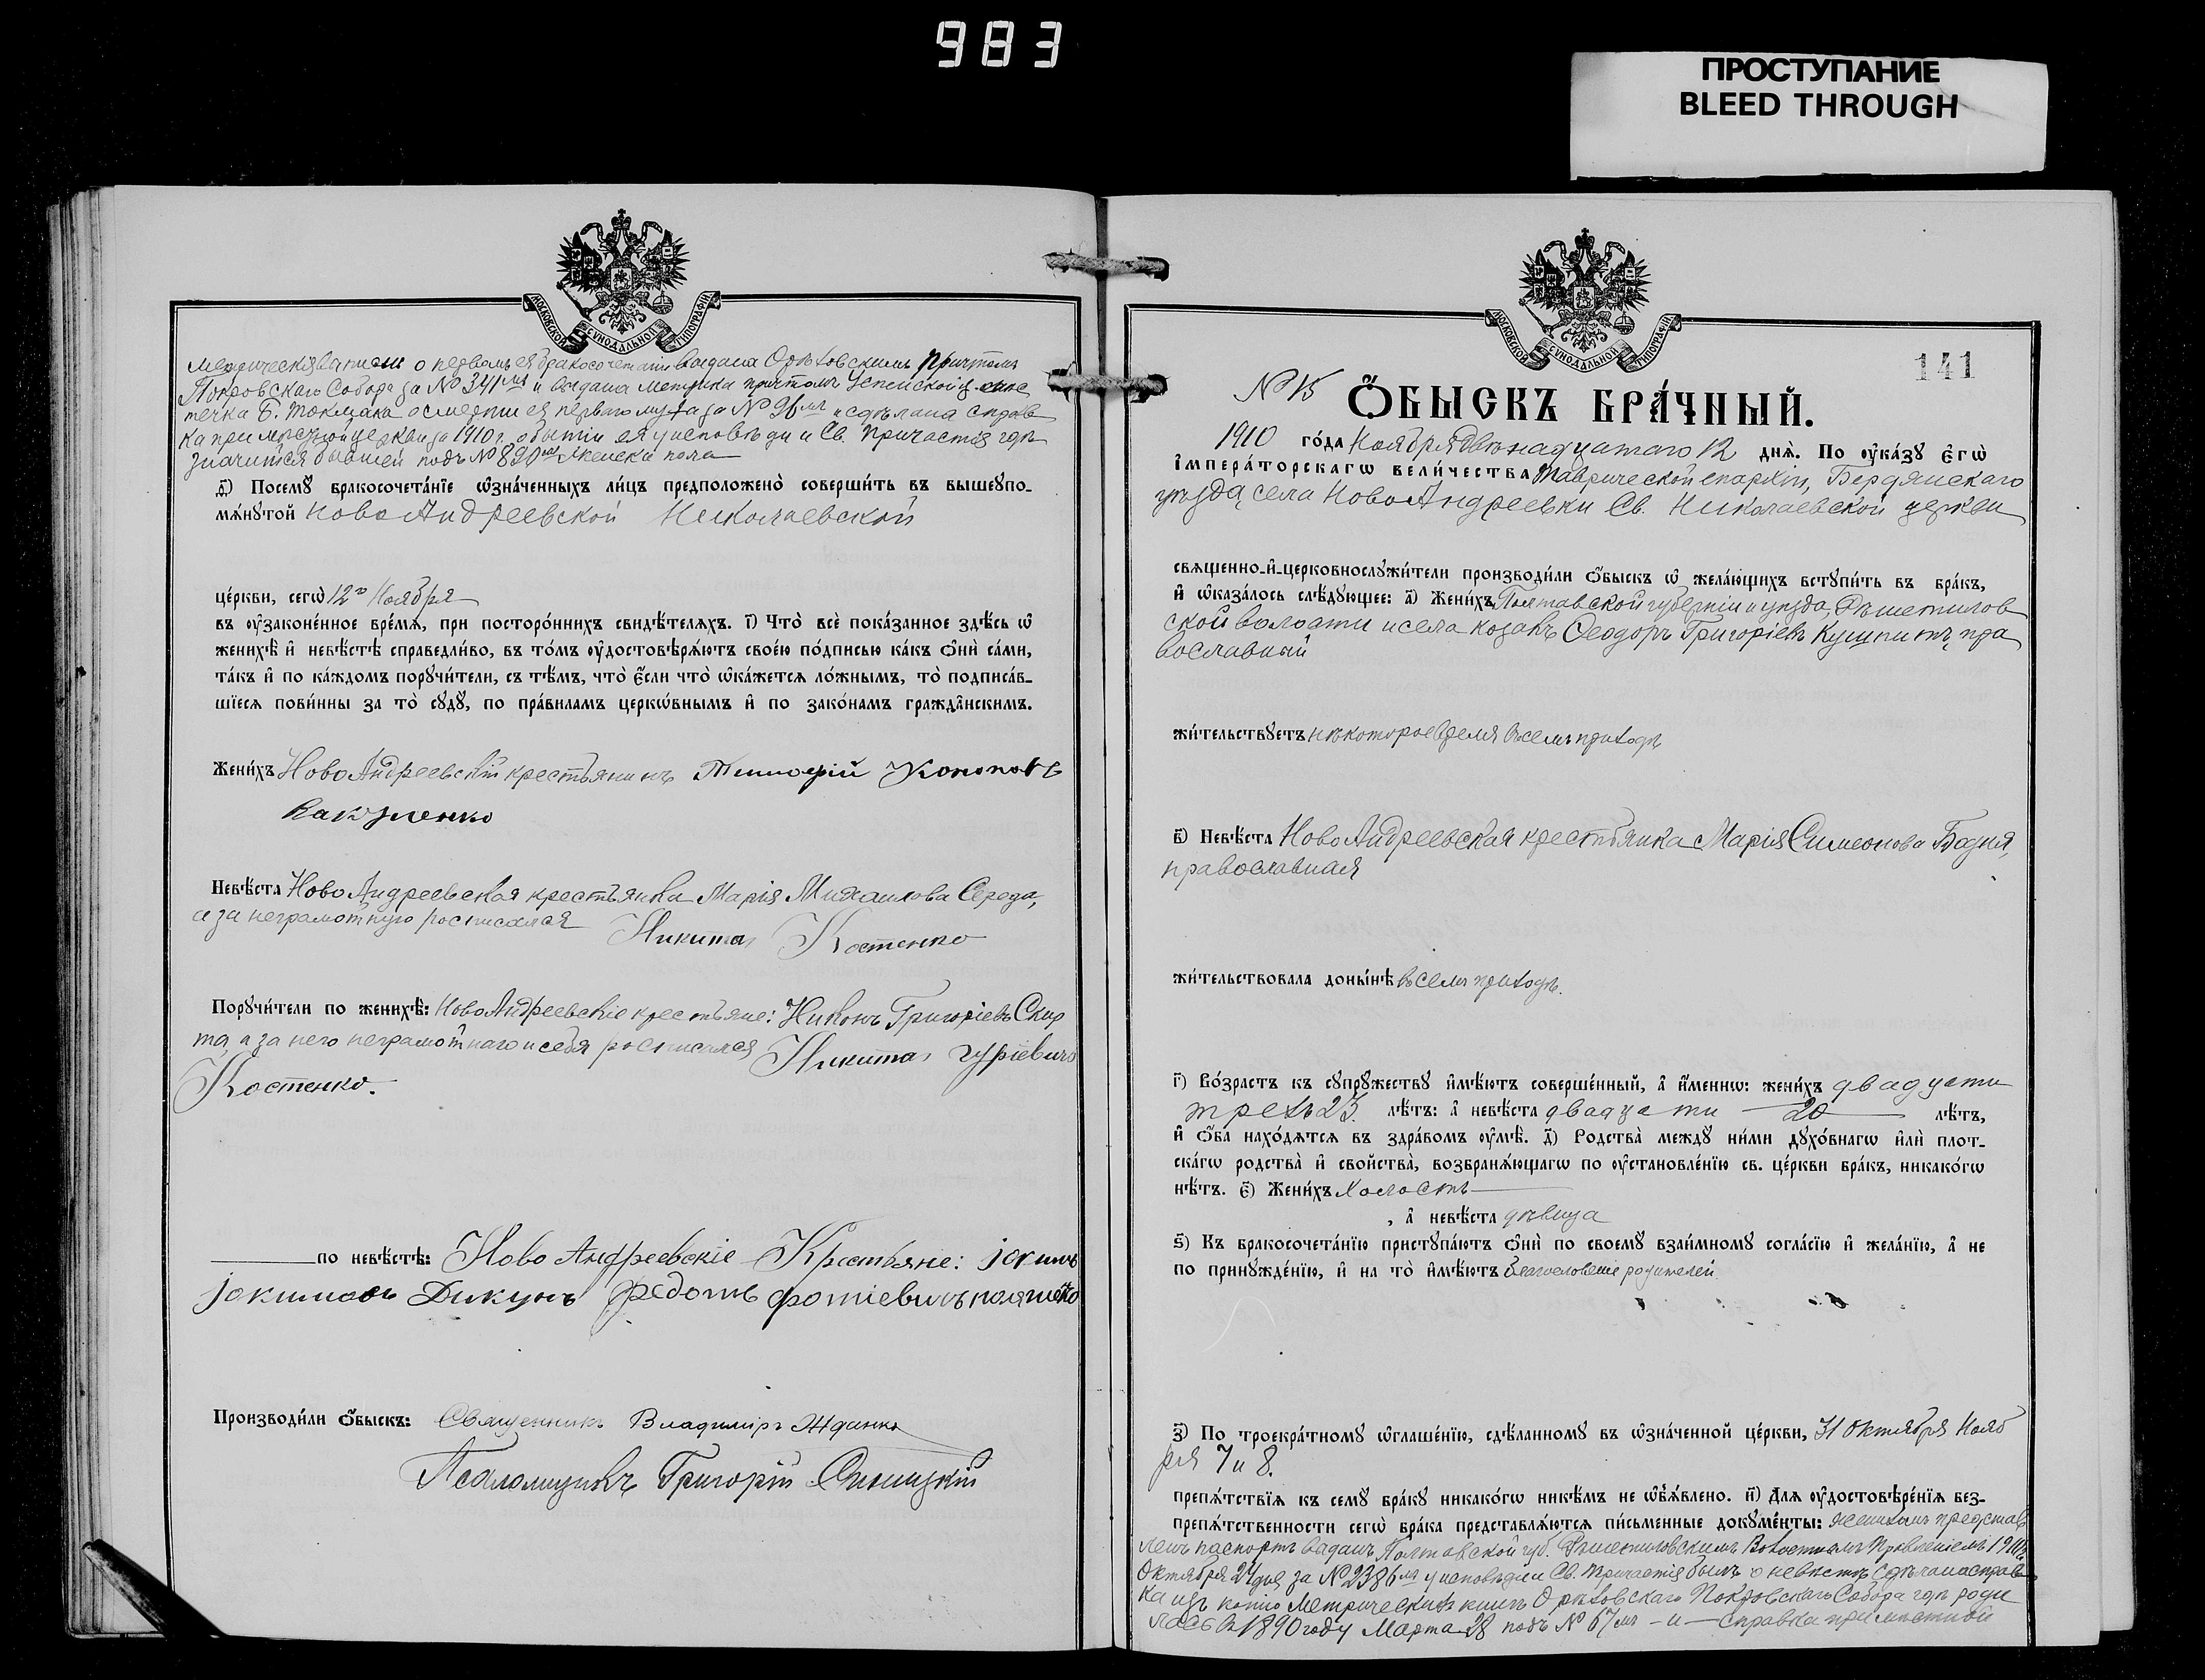 983
ПРОСТУПАНИЕ
BLEED THROUGH
МОСКОВСКОЙ СѴНОДАЛЬНОЙ ТИПОГРАФІИ
о первомъ ея бракосочетаніи выдана Орѣховскимъ причтомъ
Покровскаго Собора за № 341мъ и выдана метрика причтомъ Успенской ц.
течка Б. Токмака о смерти ея перваго мужа за № 96мъ и сдѣлана справ
ка при мѣстной церкви за 1910 г. о бытіи ея у исповѣди и Св. Причастія гдѣ
значится бывшей подъ № 890 женска пола
д҃) Посемꙋ бракосочета́нїе ѡ҆зна́ченныхъ ли́цъ предположено̀ соверши́ть въ вышеꙋпо-
мѧ́нꙋтой Ново Андреевской Николаевской
це́ркви, сегѡ̀ 12го Ноября
въ ᲂу҆законе́нное вре́мѧ, при посторо́ннихъ свидѣ́телѧхъ. і҃) Что̀ всѐ пока́занное здѣ́сь ѡ҆
женихѣ̀ и҆ невѣ́стѣ справедли́во, въ то́мъ ᲂу҆достовѣрѧ́ютъ свое́ю по́дписью ка́къ ѻ҆нѝ са́ми,
та́къ и҆ по ка́ждомъ порꙋчи́тели, съ тѣ́мъ, что̀ є҆́сли что̀ ѡ҆ка́жетсѧ ло́жнымъ, то̀ подписа́в-
шїесѧ пови́нны за то̀ сꙋдꙋ̀, по пра́виламъ церко́внымъ и҆ по зако́намъ гражда́нскимъ.
Жени́хъ Ново Андреевскій крестьянинъ Тимофій Кононовъ
Вакуленко
Невѣ́ста Ново Андреевская крестьянка Марія Михаилова Середа,
а за неграмотную росписался Никита Костенко
Порꙋчи́тели по женихѣ̀: Ново Андреевскіе крестьяне: Никонъ Григоріевъ Скир
та, а за него неграмотнаго и себя росписался Никита Гуріевичъ
Костенко.
по невѣ́стѣ: Ново Андреевскіе Крестьяне: Јокимъ
Јокимовъ Дикунъ Федотъ Фотіевичъ
Производи́ли ѻ҆́быскъ: Священникъ Владиміръ Жданко
Псаломщикъ Григорій Синицкій
МОСКОВСКОЙ СѴНОДАЛЬНОЙ ТИПОГРАФІИ
141
№ 15 Ѻ҆́БЫСКЪ БРА́ЧНЫЙ.
1910 го́да Ноября двѣнадцатаго 12 днѧ̀. По ᲂу҆ка́зꙋ є҆гѡ̀
і҆мпера́торскагѡ вели́чества Таврической епархіи, Бердянскаго
уѣзда, села Ново Андреевки Св. Николаевской церкви
свѧщенно-и҆-церковнослꙋжи́тели производи́ли ѻ҆́быскъ ѡ҆ жела́ющихъ встꙋпи́ть въ бра́къ,
и҆ ѡ҆каза́лось слѣ́дꙋющее: а҃) Жени́хъ Полтавской губерніи и уѣзда, Рѣшетилов
ской волости и села козакъ Ѳеодоръ Григоріевъ Кущпитъ, пра
вославный
жи́тельствꙋетъ нѣкоторое время въ семъ приходѣ
в҃) Невѣ́ста Ново Андреевская крестьянка Марія Симеонова Базия,
православная
жи́тельствовала доны́нѣ въ семъ приходѣ.
г҃) Во́зрастъ къ сꙋпрꙋ́жествꙋ и҆мѣ́ютъ соверше́нный, а҆ и҆́меннѡ: жени́хъ двадцати
трехъ 23 лѣ́тъ: а҆ невѣ́ста двадцати 20 лѣ́тъ,
и҆ ѻ҆́ба нахо́дѧтсѧ въ здра́вомъ ᲂу҆мѣ̀. д҃) Родства̀ междꙋ̀ ни́ми дꙋхо́внагѡ и҆лѝ плот-
ска́гѡ родства̀ и҆ свойства̀, возбранѧ́ющагѡ по ᲂу҆становле́нїю св. це́ркви бра́къ, никако́гѡ
нѣ́тъ. є҃) Жени́хъ холостъ
, а҆ невѣ́ста дѣвица
ѕ҃) Къ бракосочета́нїю пристꙋпа́ютъ ѻ҆нѝ по своемꙋ̀ взаи́мномꙋ согла́сїю и҆ жела́нїю, а҆ не
по принꙋжде́нїю, и҆ на то̀ и҆мѣ́ютъ благословеніе родителей.
з҃) По троекра́тномꙋ ѡ҆глаше́нїю, сдѣ́ланномꙋ въ ѡ҆зна́ченной це́ркви, 31 Октября Нояб
ря 7 и 8.
препѧ́тствїѧ къ семꙋ̀ бра́кꙋ никако́гѡ никѣ́мъ не ѡ҆б̾ѧ́влено. и҃) Длѧ ᲂу҆достовѣре́нїѧ без-
препѧ́тственности сегѡ̀ бра́ка представлѧ́ютсѧ пи́сьменные докꙋме́нты: женихомъ представ
ленъ паспортъ выданъ Полтавской губ. Рѣшетиловскимъ Волостнымъ Правленіемъ 1910 г.
Октября 24 дня за № 2386мъ у исповѣди и Св. Причастія былъ о невѣстѣ сдѣлана справ
ка изъ копіи метрическихъ книгъ Орѣховскаго Покровскаго Собора гдѣ роди
лась въ 1890 году Марта 28 подъ № 67мъ - и - справка при мѣстной